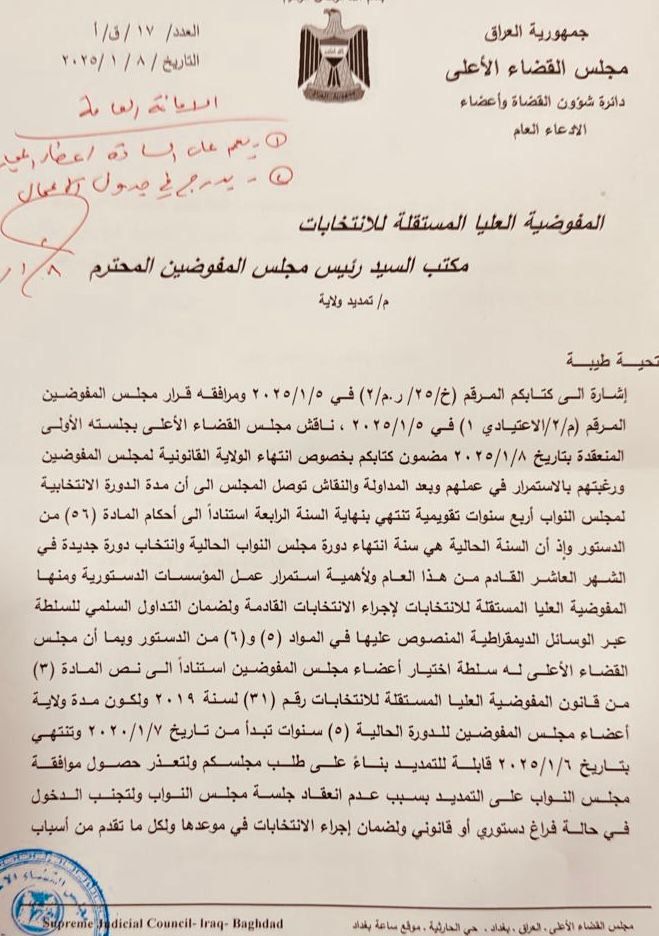 جمهورية العراق
مجلس القضاء الأعلى
دائرة شؤون القضاة وأعضاء
الادعاء العام
العدد/ ١٧ /ق/أ
التاريخ/ ٨ /٢٠٢٥/١
الامانة العامة
① يعمم على السادة اعضاء
② يدرج في جدول الاعمال
١/٨
المفوضية العليا المستقلة للانتخابات
مكتب السيد رئيس مجلس المفوضين المحترم
م/ تمديد ولاية
تحية طيبة
إشارة الى كتابكم المرقم (خ/٢٥/ ر.م/٢) في ٢٠٢٥/١/٥ ومرافقه قرار مجلس المفوضين
المرقم (م/٢/الاعتيادي ١) في ٢٠٢٥/١/٥ ، ناقش مجلس القضاء الأعلى بجلسته الأولى
المنعقدة بتاريخ ٢٠٢٥/١/٨ مضمون كتابكم بخصوص انتهاء الولاية القانونية لمجلس المفوضين
ورغبتهم بالاستمرار في عملهم وبعد المداولة والنقاش توصل المجلس الى أن مدة الدورة الانتخابية
لمجلس النواب أربع سنوات تقويمية تنتهي بنهاية السنة الرابعة استناداً الى أحكام المادة (٥٦) من
الدستور وإذ أن السنة الحالية هي سنة انتهاء دورة مجلس النواب الحالية وانتخاب دورة جديدة في
الشهر العاشر القادم من هذا العام ولأهمية استمرار عمل المؤسسات الدستورية ومنها
المفوضية العليا المستقلة للانتخابات لإجراء الانتخابات القادمة ولضمان التداول السلمي للسلطة
عبر الوسائل الديمقراطية المنصوص عليها في المواد (٥) و(٦) من الدستور وبما أن مجلس
القضاء الأعلى له سلطة اختيار أعضاء مجلس المفوضين استناداً الى نص المادة (٣)
من قانون المفوضية العليا المستقلة للانتخابات رقم (٣١) لسنة ٢٠١٩ ولكون مدة ولاية
أعضاء مجلس المفوضين للدورة الحالية (٥) سنوات تبدأ من تاريخ ٢٠٢٠/١/٧ وتنتهي
بتاريخ ٢٠٢٥/١/٦ قابلة للتمديد بناءً على طلب مجلسكم ولتعذر حصول موافقة
مجلس النواب على التمديد بسبب عدم انعقاد جلسة مجلس النواب ولتجنب الدخول
في حالة فراغ دستوري أو قانوني ولضمان إجراء الانتخابات في موعدها ولكل ما تقدم من أسباب
مجلس القضاء الأعلى . العراق . بغداد . حي الحارثية . موقع ساعة بغداد
Supreme Judicial Council- Iraq- Baghdad